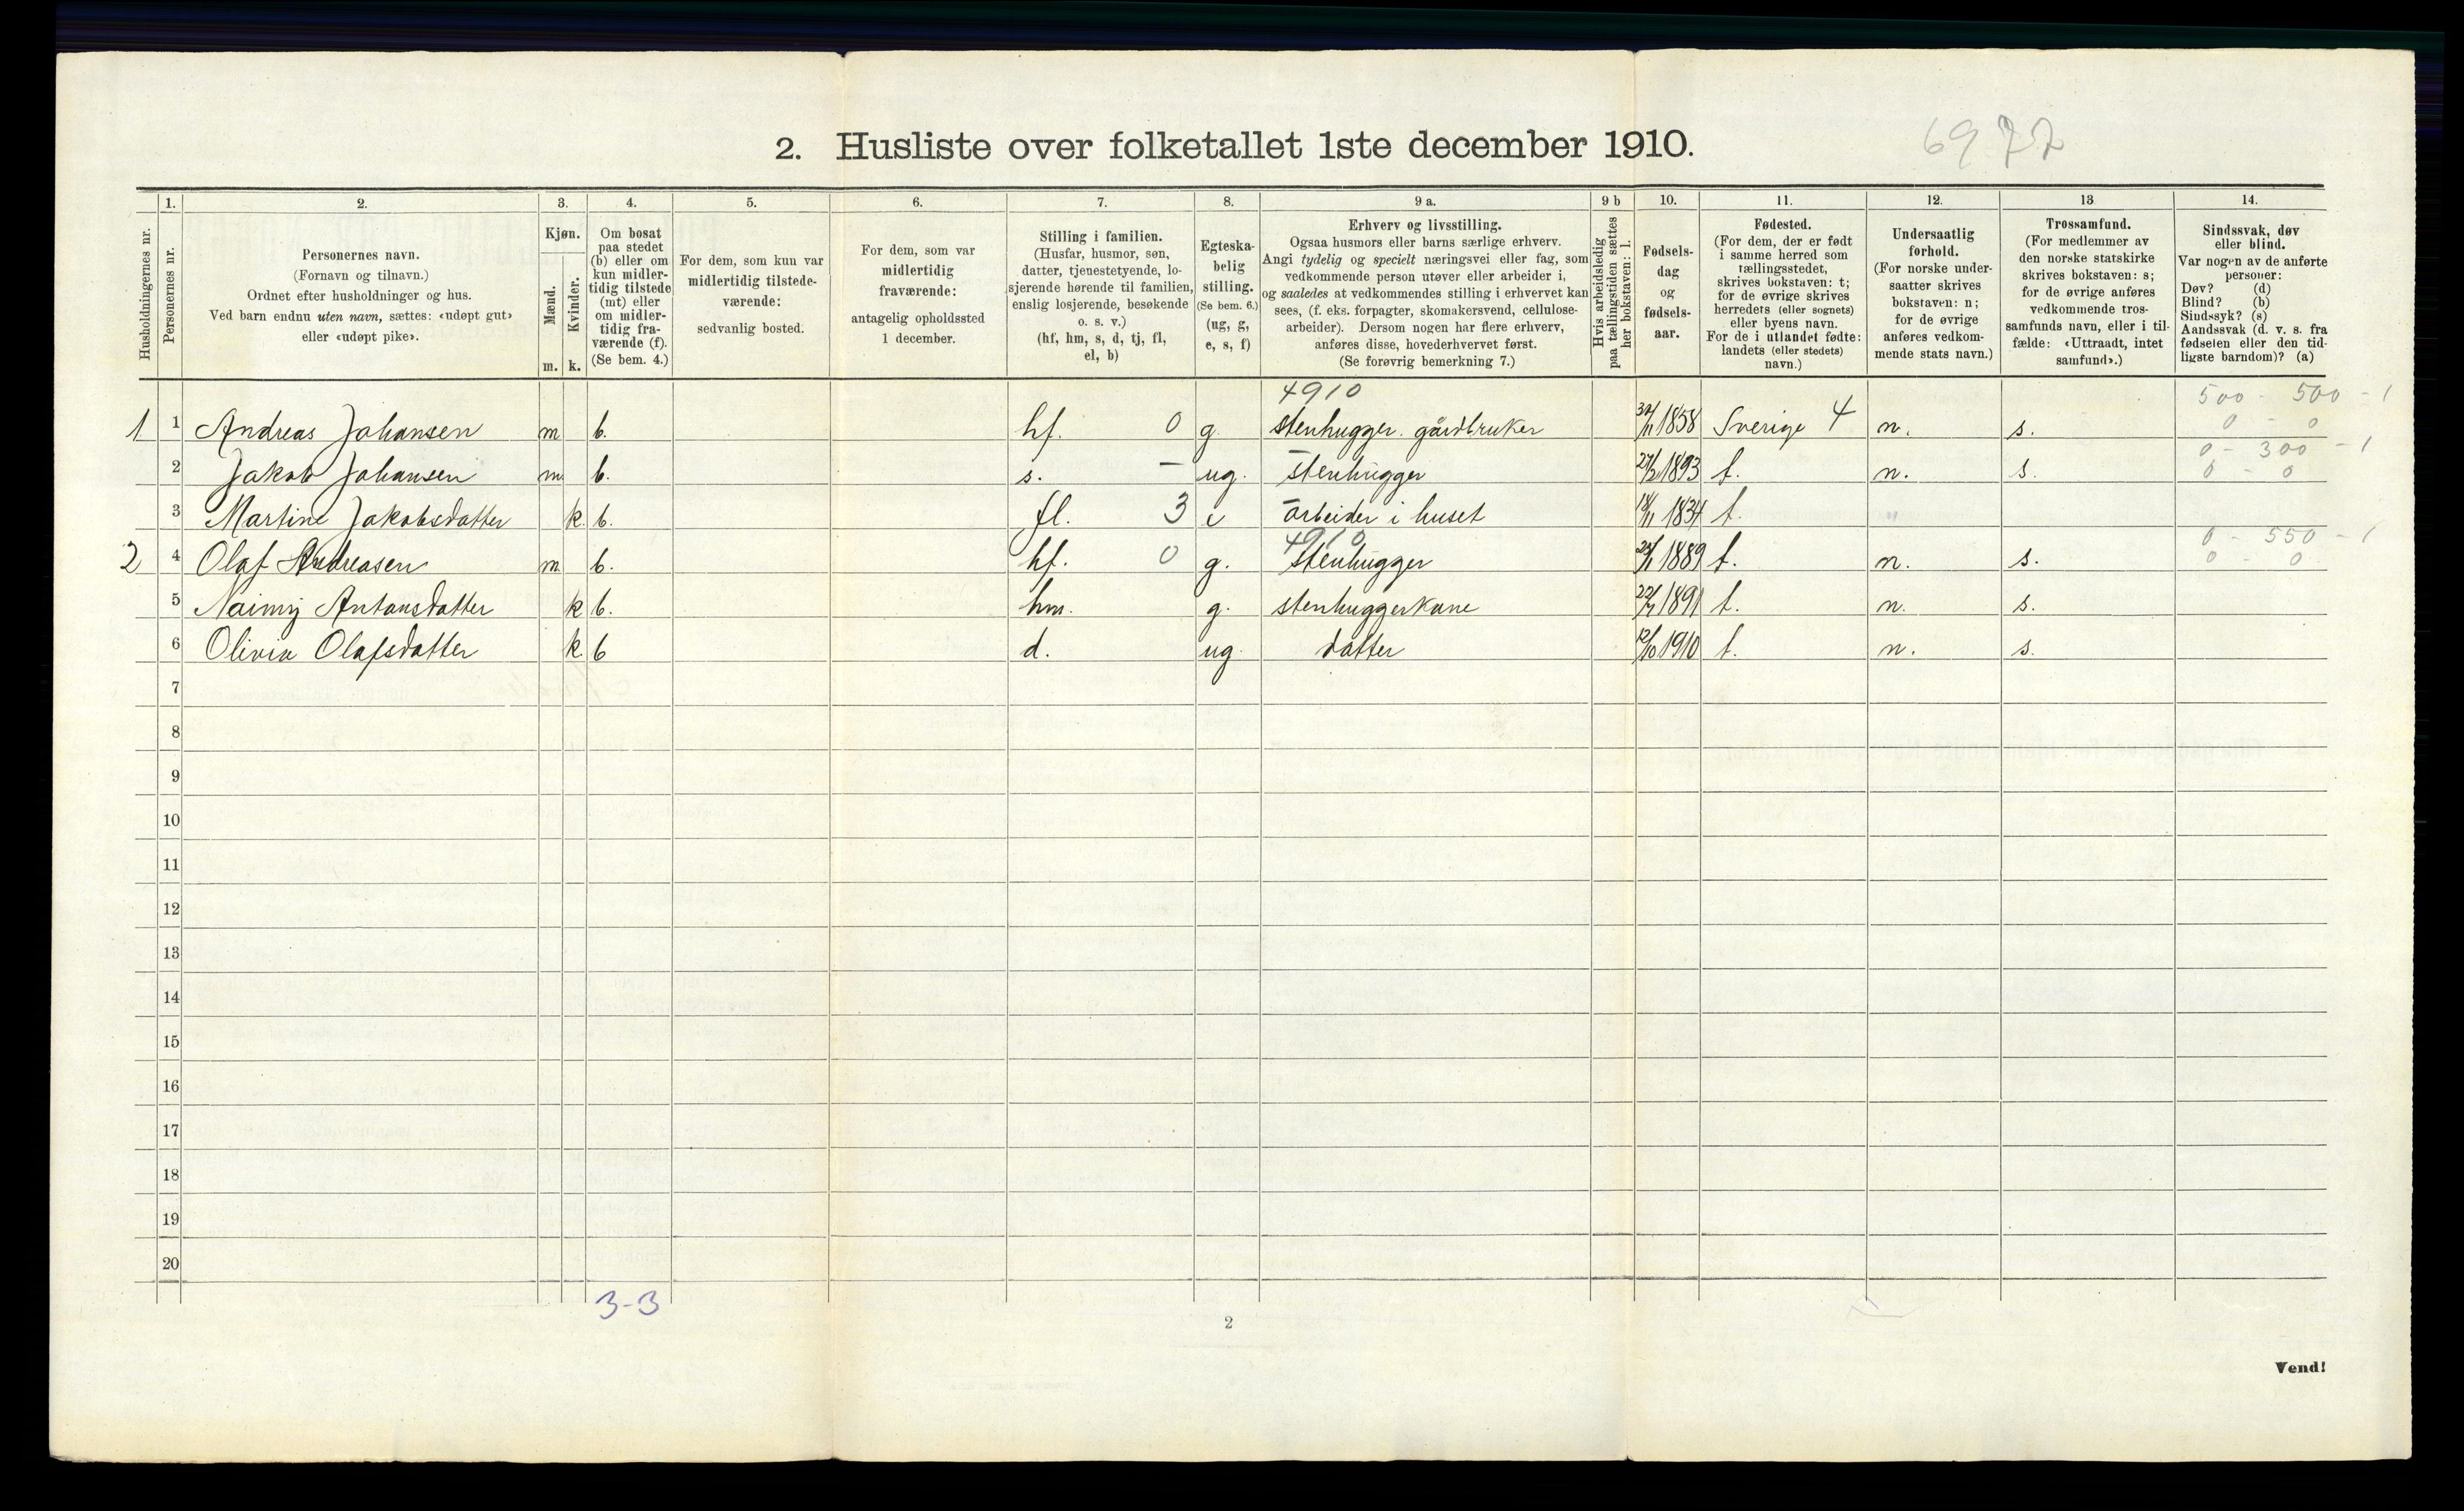 2. Husliste over folketallet 1ste december 1910.
69 22
Husholdningernes nr.
1. Personernes nr.
2. Personernes navn.
(Fornavn og tilnavn.)
Ordnet efter husholdninger og hus.
Ved barn endnu uten navn, sættes: «udøpt gut»
eller «udøpt pike».
3. Kjøn.
Mænd. Kvinder.
m. k.
4. Om bosat
paa stedet
(b) eller om
kun midler-
tidig tilstede
(mt) eller
om midler-
tidig fra-
værende (f).
(Se bem. 4.)
5. For dem, som kun var
midlertidig tilstede-
værende:
sedvanlig bosted.
6. For dem, som var
midlertidig
fraværende:
antagelig opholdssted
1 december.
7. Stilling i familien.
(Husfar, husmor, søn,
datter, tjenestetyende, lo-
sjerende hørende til familien,
enslig losjerende, besøkende
o. s. v.)
(hf, hm, s, d, tj, fl,
el, b)
8. Egteska-
belig
stilling.
(Se bem. 6.)
(ug, g,
e, s, f)
9 a. Erhverv og livsstilling.
Ogsaa husmors eller barns særlige erhverv.
Angi tydelig og specielt næringsvei eller fag, som
vedkommende person utøver eller arbeider i,
og saaledes at vedkommendes stilling i erhvervet kan
sees, (f. eks. forpagter, skomakersvend, cellulose-
arbeider). Dersom nogen har flere erhverv,
anføres disse, hovederhvervet først.
(Se forøvrig bemerkning 7.)
9 b Hvis arbeidsledig
paa tællingstiden sættes
her bokstaven: l.
10. Fødsels-
dag
og
fødsels-
aar.
11. Fødested.
(For dem, der er født
i samme herred som
tællingsstedet,
skrives bokstaven: t;
for de øvrige skrives
herredets (eller sognets)
eller byens navn.
For de i utlandet fødte:
landets (eller stedets)
navn.)
12. Undersaatlig
forhold.
(For norske under-
saatter skrives
bokstaven: n;
for de øvrige
anføres vedkom-
mende stats navn.)
13 Trossamfund.
(For medlemmer av
den norske statskirke
skrives bokstaven: s;
for de øvrige anføres
vedkommende tros-
samfunds navn, eller i til-
fælde: «Uttraadt, intet
samfund».)
14. Sindssvak, døv
eller blind.
Var nogen av de anførte
personer:
Døv? (d)
Blind? (b)
Sindssyk? (s)
Aandssvak (d. v. s. fra
fødselen eller den tid-
ligste barndom)? (a)
4910 500 - 500 - 1
1 1 Andreas Johansen m b. hf. 0 g. stenhugger. gårdbruker 30/11 1858 Sverige 4 n. s. 0 - 0
0 - 300 - 1
2 Jakob Johansen m b. s. - ug. stenhugger 27/2 1893 t. n. s. 0 - 0
3 Martine Jakobsdatter k. b. fl. 3 e arbeider i huset 18/11 1834 t. "
4910 0 - 550 - 1
2 4 Olaf Andreasen m b. hf. 0 g. stenhugger 1889 t. n. s. 0 - 0
5 Antonsdatter k b. hm. g. stenhuggerkone 1891 t. n. s.
6 Olivia Olafsdatter k. b d. ug. datter 12/10 1910 t. n. s.
7
8
9
10
11
12
13
14
15
16
17
18
19
20
3-3
2
Vend!